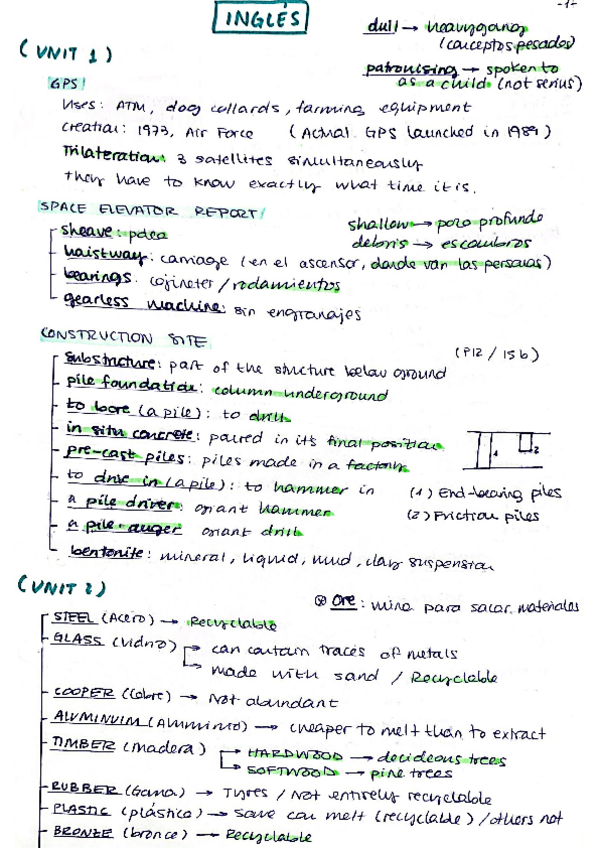 INGLÉS
-1-
dull → heavygoing
(conceptos pesados)
patronising → spoken to
as a child (not serius)
(UNIT 1)
GPS!
Uses: ATM, dog collards, farming equipment
Creation: 1973, Air Force (Actual GPS launched in 1989)
Trilateration: 3 satellites simultaneously
they have to know exactly what time it is.
SPACE ELEVATOR REPORT!
shallow → poco profundo
debris → escombros
sheave: polea
haistway: carriage (en el ascensor, donde van las personas)
bearings: cojinetes / rodamientos
gearless machine: sin engranajes
CONSTRUCTION SITE
(P12 / 15b)
Substructure: part of the structure below ground
pile foundation: column underground
to bore (a pile): to drill
in situ concrete: poured in its final position
pre-cast piles: piles made in a factory
to drive in (a pile): to hammer in
a pile driver: giant hammer
a pile auger giant drill
bentonite: mineral, liquid, mud, clay suspension
1 2
(1) End-bearing piles
(2) Friction piles
(UNIT 2)
⊗ Ore: mina para sacar materiales
STEEL (Acero) → Recyclable
GLASS (vidrio) → can contain traces of metals
→ made with sand / Recyclable
COOPER (Cobre) → Not abundant
ALUMINUIM (Aluminio) → cheaper to melt than to extract
TIMBER (madera) → HARDWOOD → decideous trees
→ SOFTWOOD → pine trees
RUBBER (Goma) → Tyres / Not entirely recyclable
PLASTIC (plástico) → some can melt (recyclable) / others not
BRONZE (bronce) → Recyclable